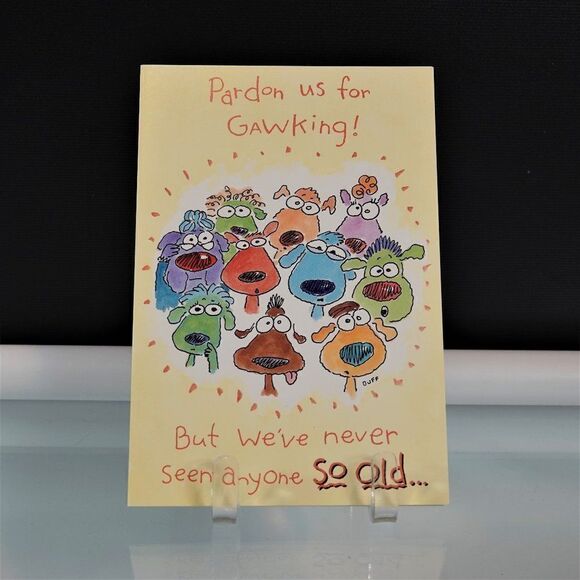 Pardon us for
GAWKing!
DUFF
But we've never
seen anyone So Old...